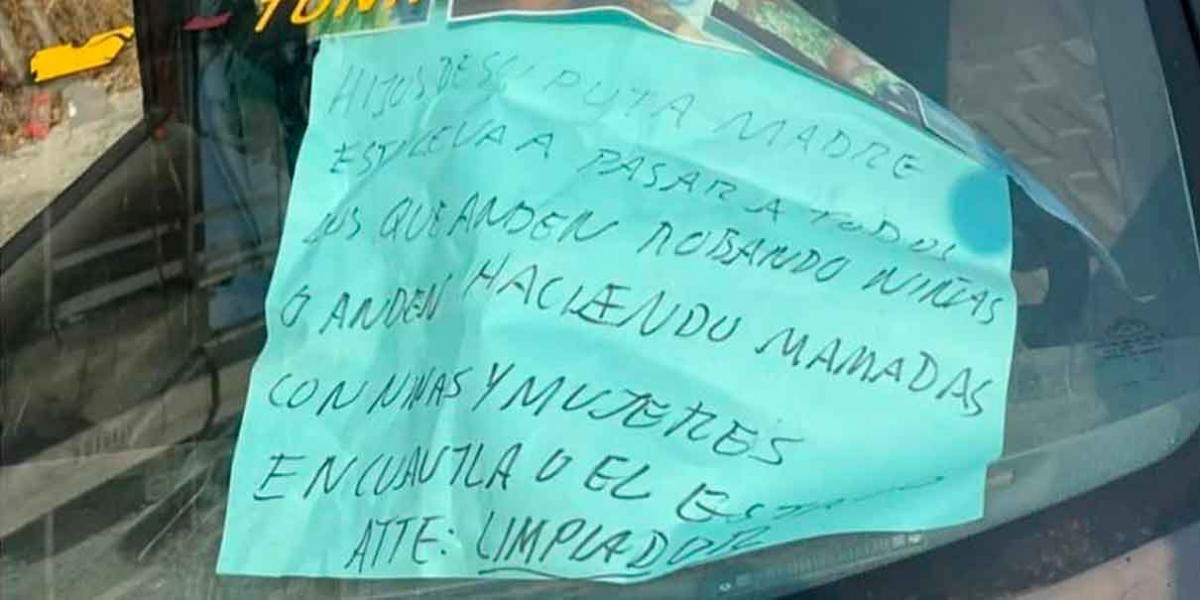 HIJOS DE SU PUTA MADRE
ESTO LE VA A PASAR A TODOS
LOS QUE ANDEN ROBANDO NIÑAS
O ANDEN HACIENDO MAMADAS
CON NIÑAS Y MUJERES
EN CUAUTLA O EL
ATTE: LIMPIADOR